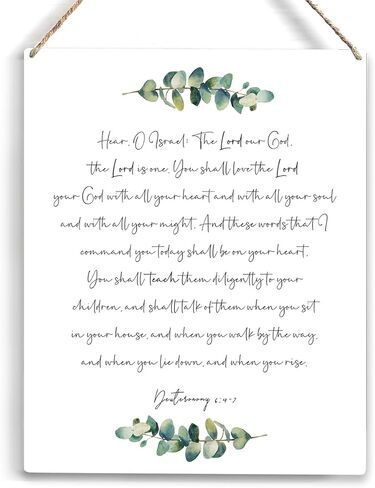 Hear, O Israel: The Lord our God,
the Lord is one. You shall love the Lord
your God with all your heart and with all your soul
and with all your might. And these words that I
command you today shall be on your heart.
You shall teach them diligently to your
children, and shall talk of them when you sit
in your house, and when you walk by the way,
and when you lie down, and when you rise.
Deuteronomy 6:4-7